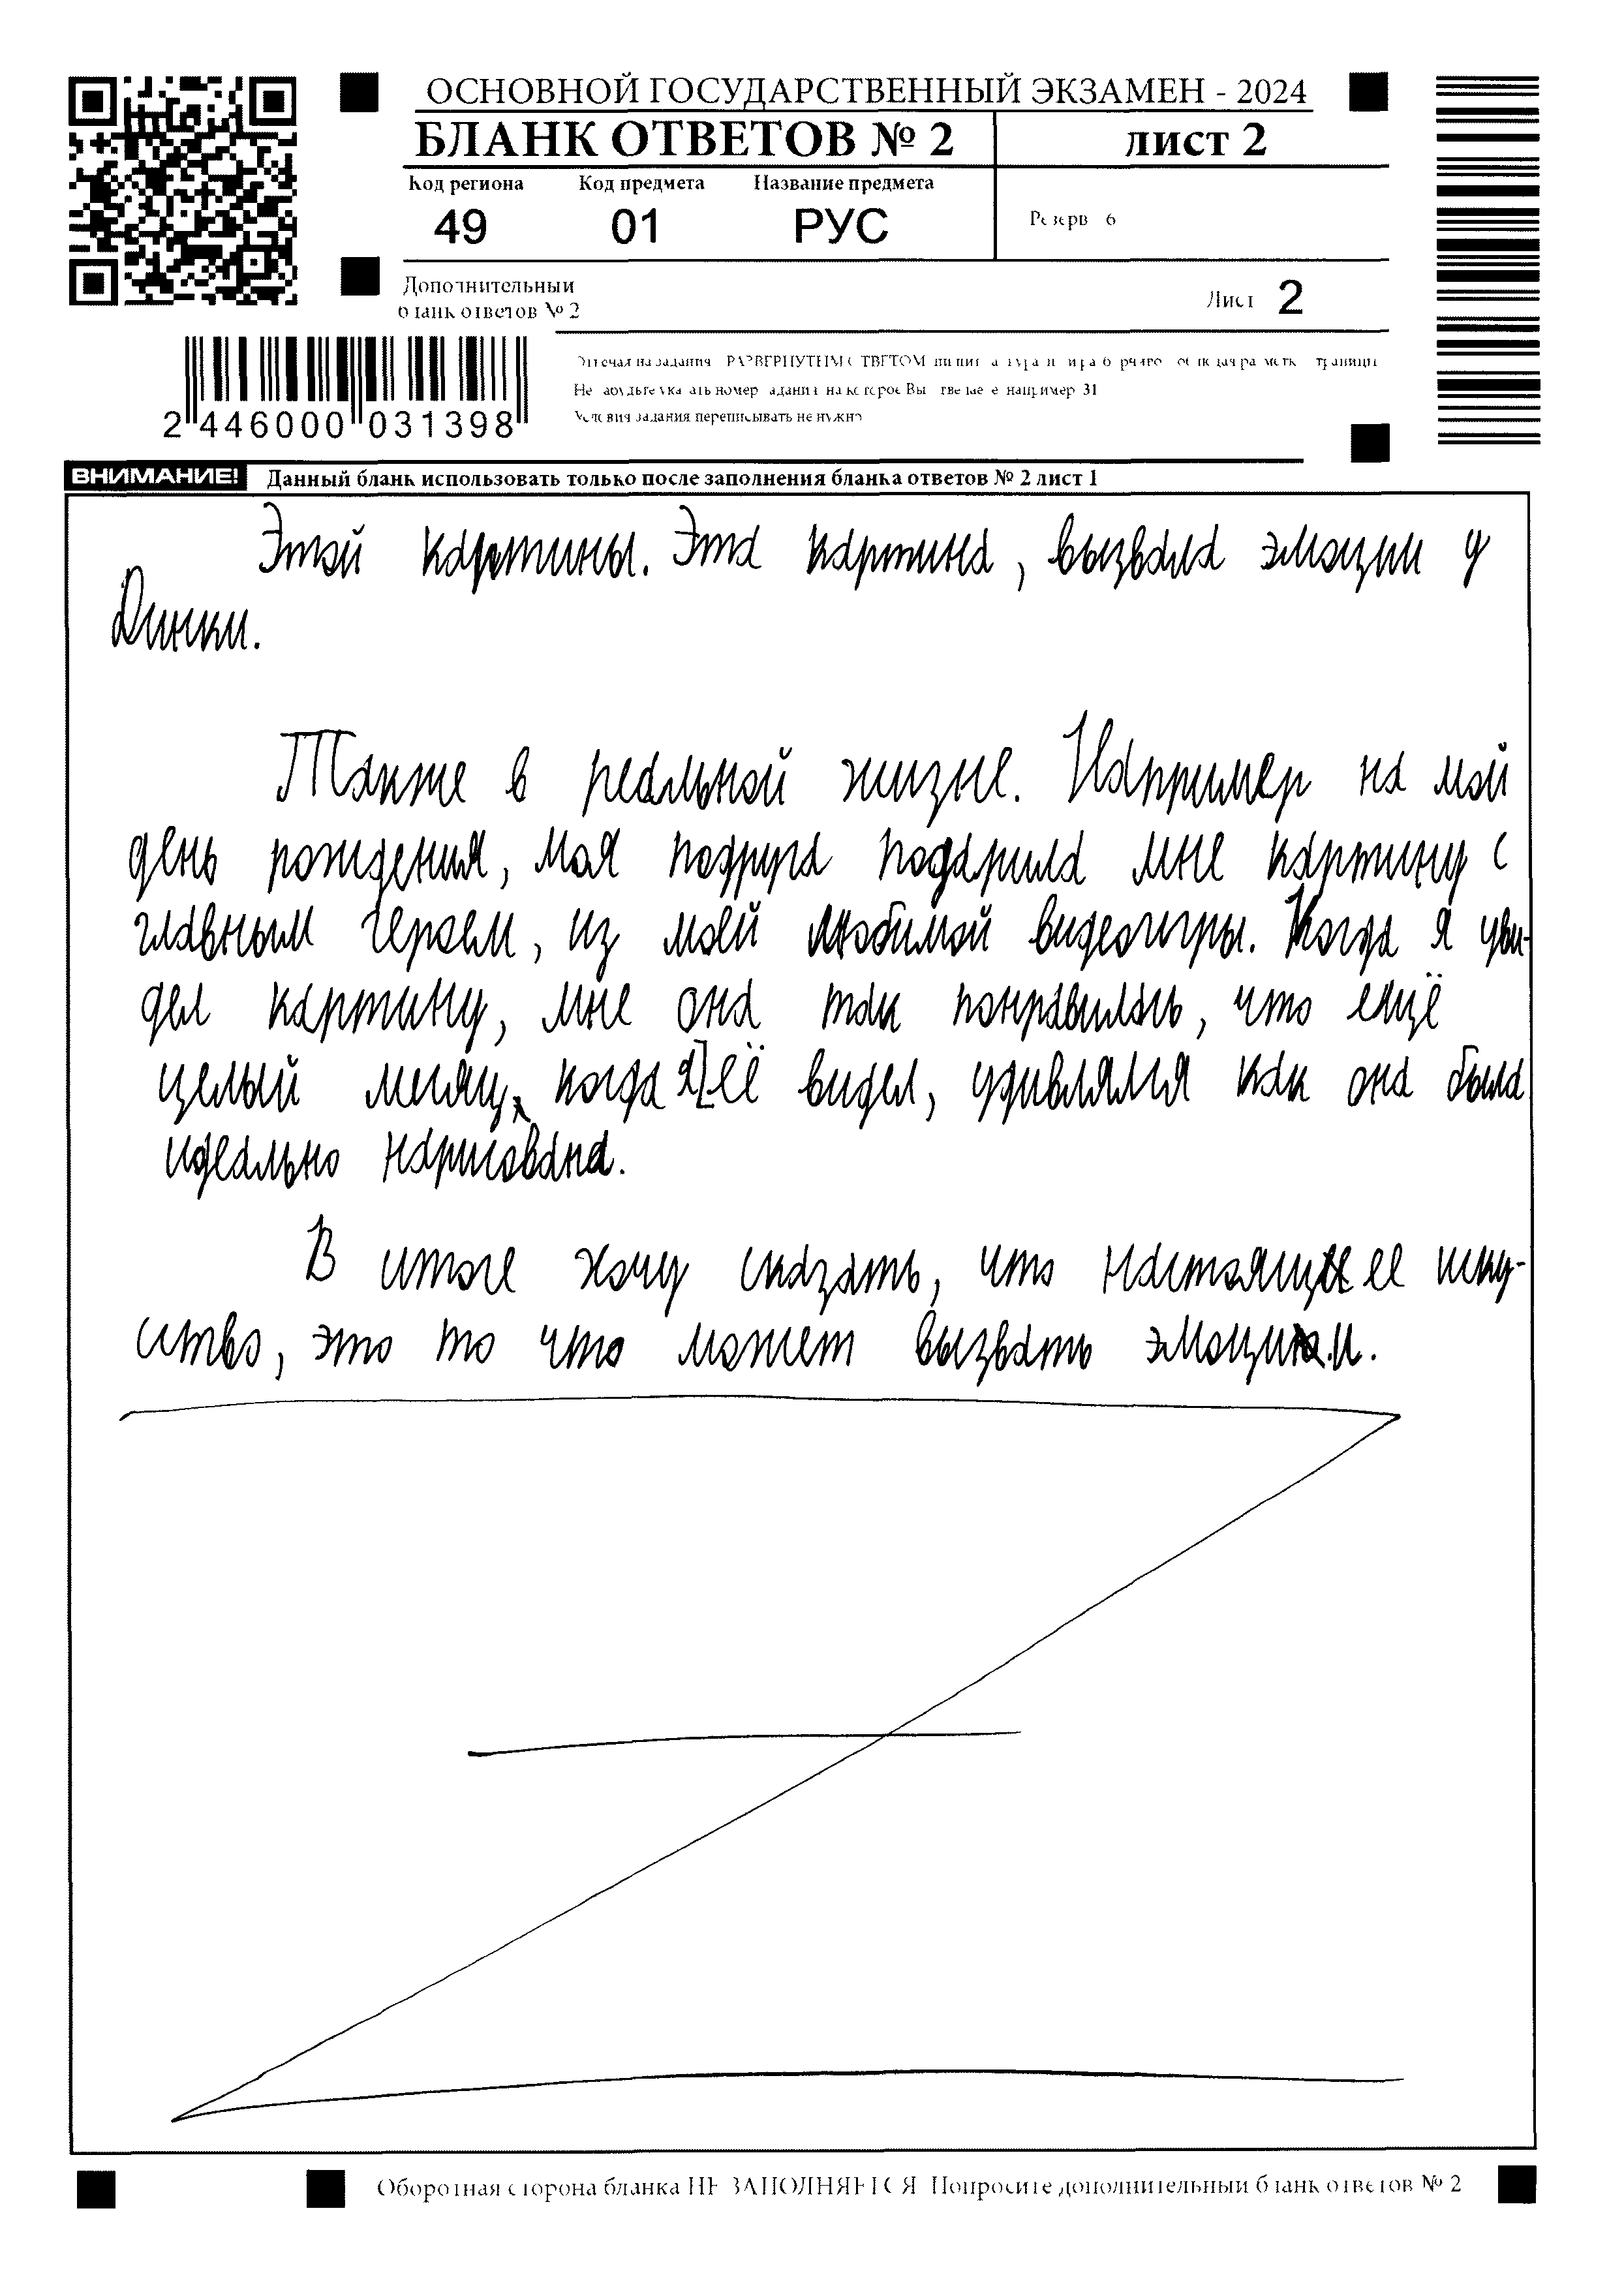 ОСНОВНОЙ ГОСУДАРСТВЕННЫЙ ЭКЗАМЕН - 2024
БЛАНК ОТВЕТОВ № 2
лист 2
Код региона
Код предмета
Название предмета
49
01
РУС
Резерв 6
Дополнительный
бланк ответов № 2
Лист 2
2 446000 031398
Условия задания переписывать не нужно
ВНИМАНИЕ! Данный бланк использовать только после заполнения бланка ответов № 2 лист 1
Этой картины. Эта картина, вызвала эмоции у
Динки.
Также в реальной жизне. Например на мой
день рождения, моя подруга подарила мне картину с
главным героем, из моей любимой видеоигры. Когда я уви-
дел картину, мне она так понравилась, что ещё
целый месяц, когда я её видел, удивлялся как она была
идеально нарисована.
В итоге хочу сказать, что настоящее иску-
ство, это то что может вызвать эмоции.
Оборотная сторона бланка НЕ ЗАПОЛНЯЕТСЯ Попросите дополнительный бланк ответов № 2